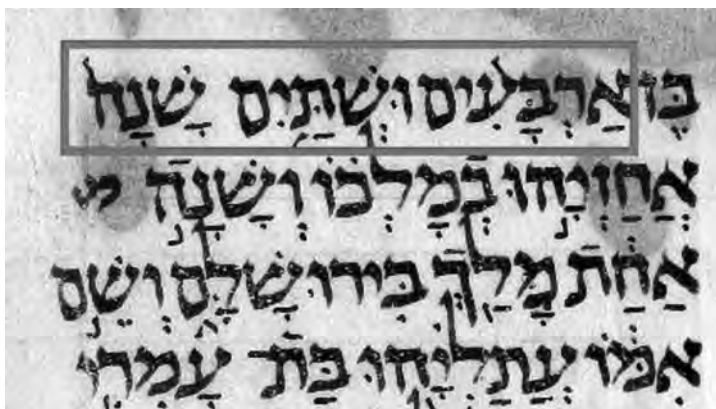 בֶּן אַרְבָּעִים וּשְׁתַּיִם שָׁנָה
אֲחַזְיָהוּ בְּמָלְכוֹ וְשָׁנָה
אַחַת מָלַךְ בִּירוּשָׁלִָם וְשֵׁם
אִמּוֹ עֲתַלְיָהוּ בַּת עָמְרִי